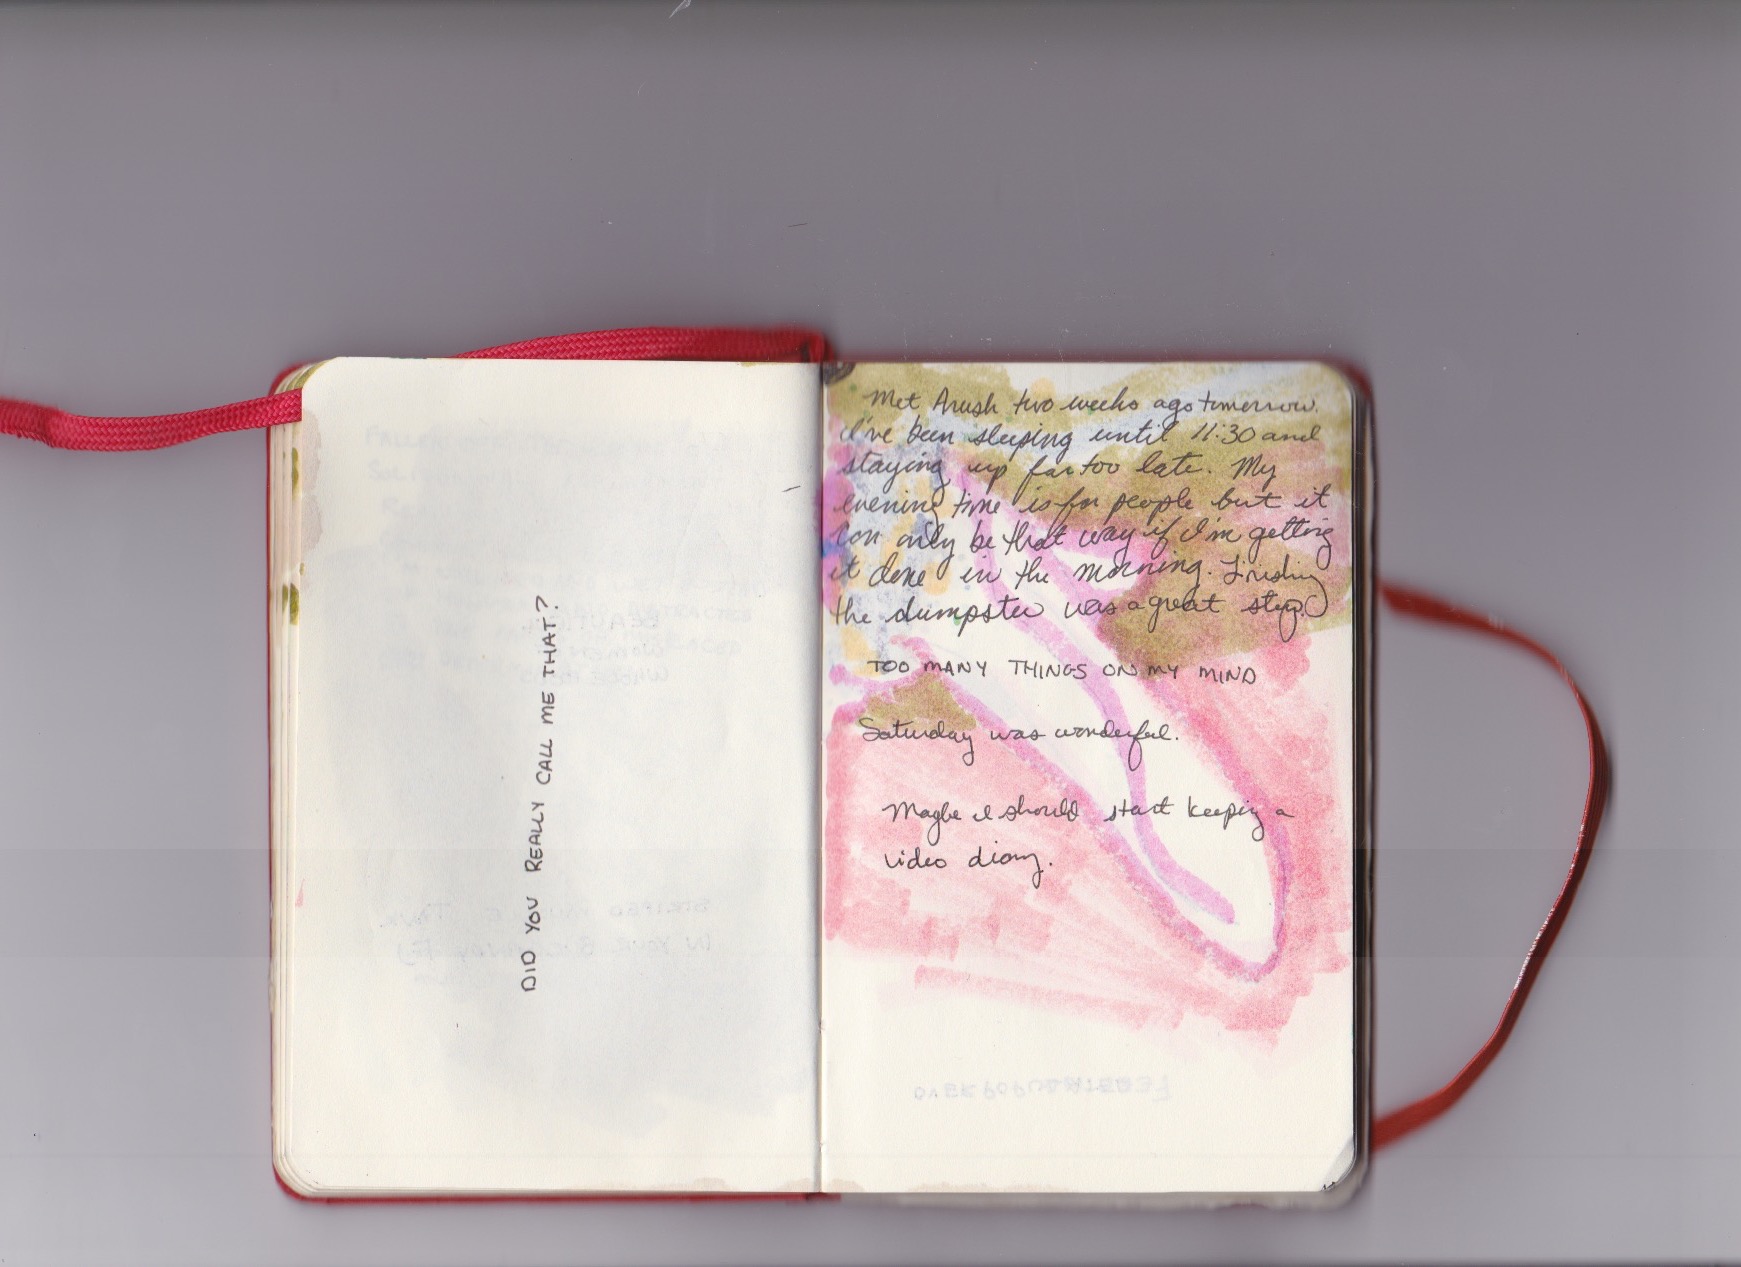 DID YOU REALLY CALL ME THAT?
Met Arush two weeks ago tomorrow.
I've been sleeping until 11:30 and
staying up far too late. My
evening time is for people but it
can only be that way if I'm getting
it done in the morning. Finishing
the dumpster was a great step.
TOO MANY THINGS ON MY MIND
Saturday was wonderful.
Maybe I should start keeping a
video diary.
OVERPOPULATED